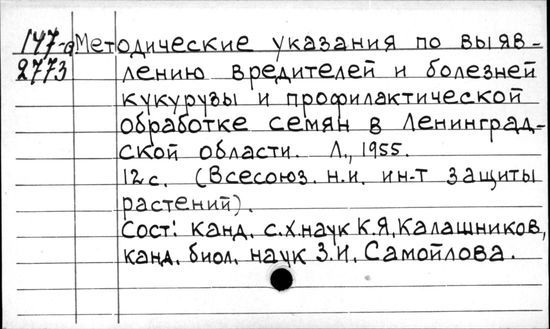 147-а Методические указания по выяв-
2773 лению вредителей и болезней
кукурузы и профилактической
обработке семян в Ленинград-
ской области. Л., 1955.
12 с. (Всесоюз. н.и. ин-т защиты
растений).
Сост: канд. с.х. наук К.Я. Калашников,
канд. биол. наук З.И. Самойлова.